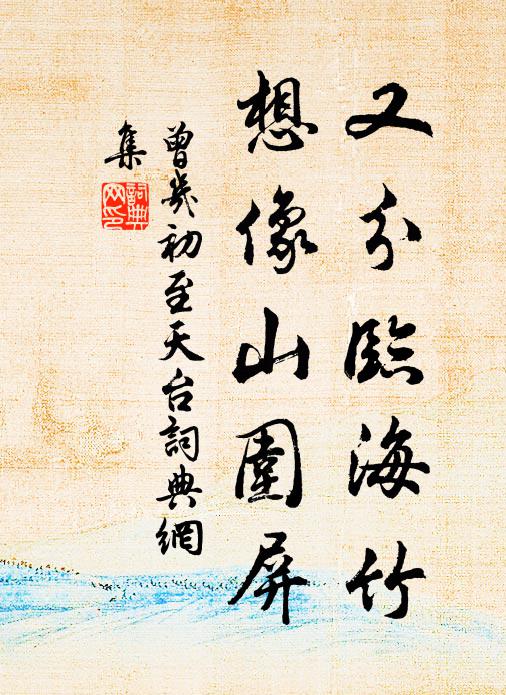 又分臨海竹
想像山圍屏
曾幾初至天台詞典網
集
詞典網印